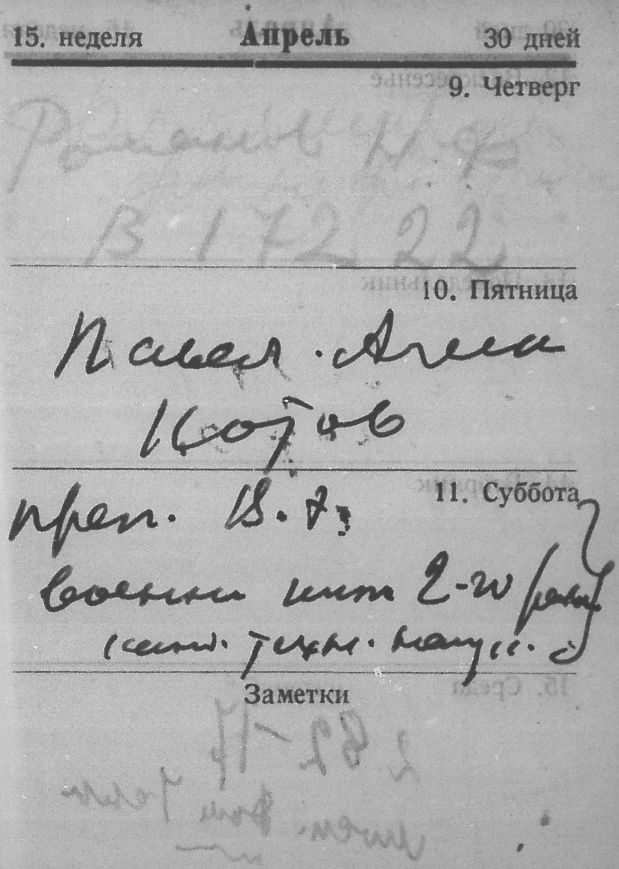 15. неделя Апрель 30 дней
9. Четверг
Романов Н. Ф.
В 1 72 22
10. Пятница
Павел. Алек
Котов
11. Суббота
преп.
военни инж 2-го ранга
канд. техн. наук.
Заметки